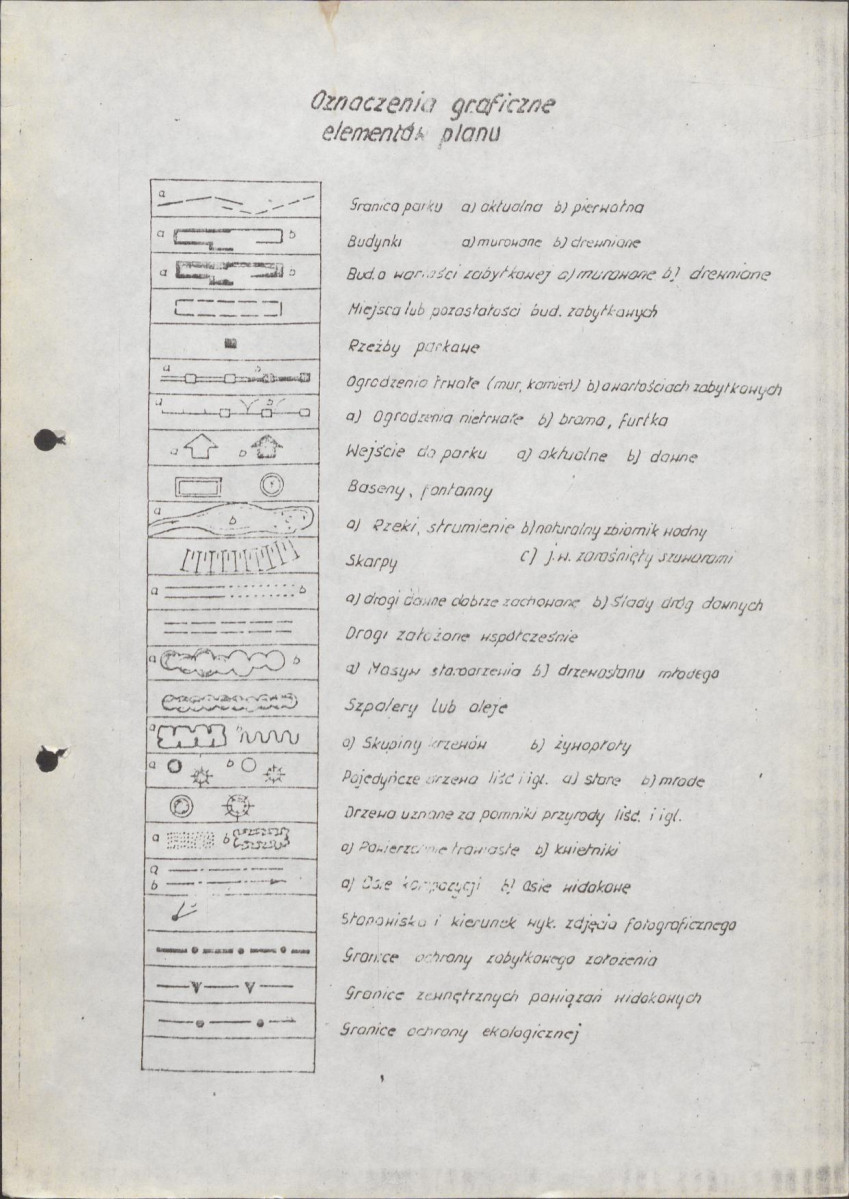 Oznaczenia graficzne
elementów planu
a
Granica parku a) aktualna b) pierwotna
a b
Budynki a) murowane b) drewniane
a b
Bud. o wartości zabytkowej a) murowane b) drewniane
Miejsca lub pozostałości bud. zabytkowych
Rzeźby parkowe
a b
Ogrodzenia trwałe (mur, kamień) b) o wartościach zabytkowych
a b
a) Ogrodzenia nietrwałe b) brama, furtka
a b
Wejście do parku a) aktualne b) dawne
Baseny, fontanny
a b c
a) Rzeki, strumienie b) naturalny zbiornik wodny
c) j.w. zarośnięty szuwarami
Skarpy
a b
a) drogi dawne dobrze zachowane b) Ślady dróg dawnych
Drogi założone współcześnie
a b
a) Masyw starodrzewia b) drzewostanu młodego
Szpalery lub aleje
a b
a) Skupiny krzewów b) żywopłoty
a b
Pojedyńcze drzewa liść i igl. a) stare b) młode
Drzewa uznane za pomniki przyrody liść. i igl.
a b
a) Powierzchnie trawiaste b) kwietniki
a
b
a) Osie kompozycji b) osie widokowe
Stanowisko i kierunek wyk. zdjęcia fotograficznego
Granice ochrony zabytkowego założenia
Granice zewnętrznych powiązań widokowych
Granice ochrony ekologicznej